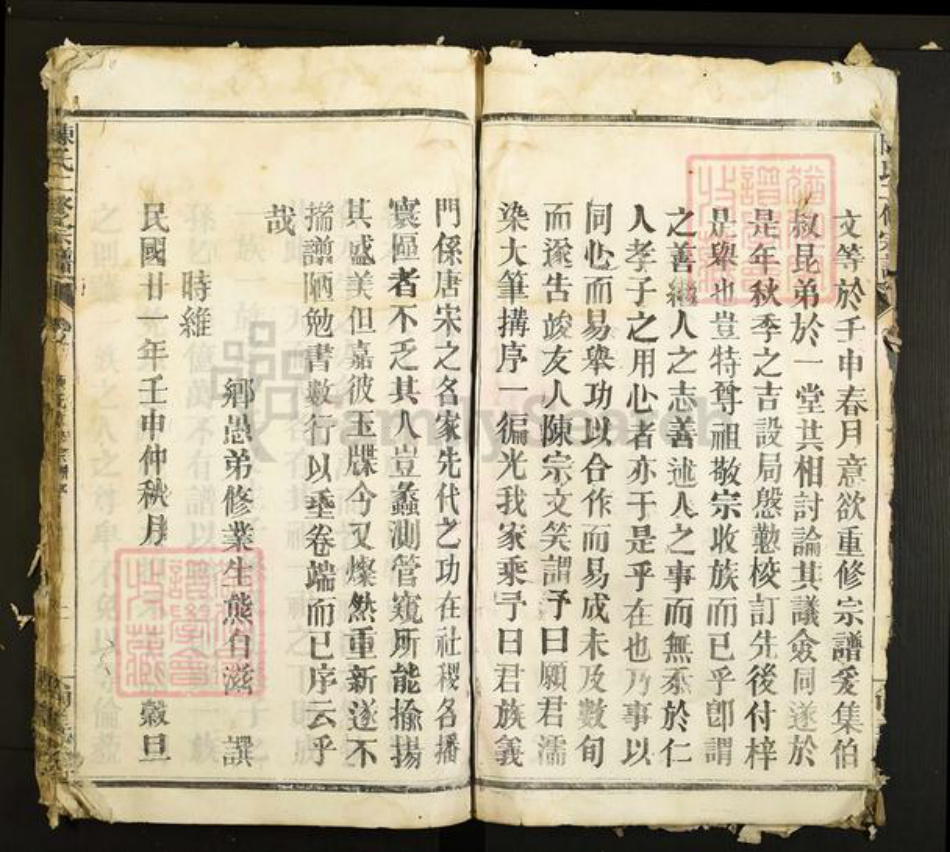 文等於壬申春月意欲重修宗譜爰集伯
叔昆弟於一堂共相討論其議僉同遂於
是年秋季之吉設局慇懃校訂先後付梓
是舉也豈特尊祖敬宗收族而已乎卽謂
之善繼人之志善述人之事而無忝於仁
人孝子之用心者亦于是乎在也乃事以
同心而易舉功以合作而易成未及數旬
而遂告竣友人陳宗文笑謂予曰願君濡
染大筆搆序一徧光我家乘予曰君族義
門係唐宋之名家先代之功在社稷名播
寰區者不乏其人豈蠡測管窺所能揄揚
其盛美但嘉彼玉牒今又燦然重新遂不
揣譾陋勉書數行以埀卷端而已序云乎
哉
鄉愚弟修業生熊自滋 譔
時維
民國廿一年壬申仲秋月 穀旦
陳氏二修宗譜
譜學會
收藏
FamilySearch